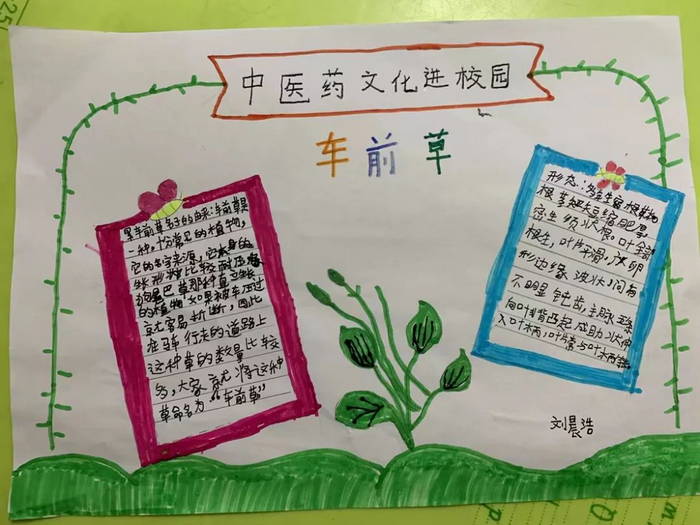 中医药文化进校园
车前草
车前草名子的由来:车前草是
一种,十份常见的植物,
它的名字来源,
的植物,如果被车压过
就容易折断,因此
在马车行走的道路上
这种草的数量比较
多,大家就将这种
草命名为“车前草”
形态:多年生宿根草本
根茎短缩肥厚
密生须状根。叶全部
根生,叶片平滑,广卵
形边缘波状,间有
不明显钝齿,主脉五条
向叶背凸起,成肋状伸
入叶柄,叶片常与叶柄等
刘晨浩